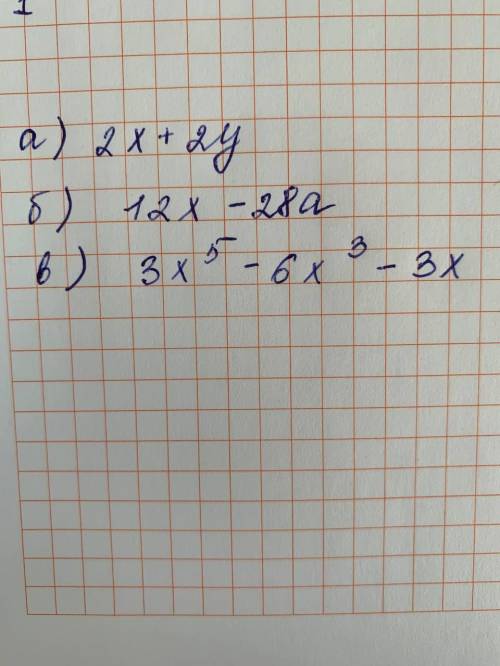 1
а) 2x + 2y
б) 12x - 28a
в) 3x⁵ - 6x³ - 3x